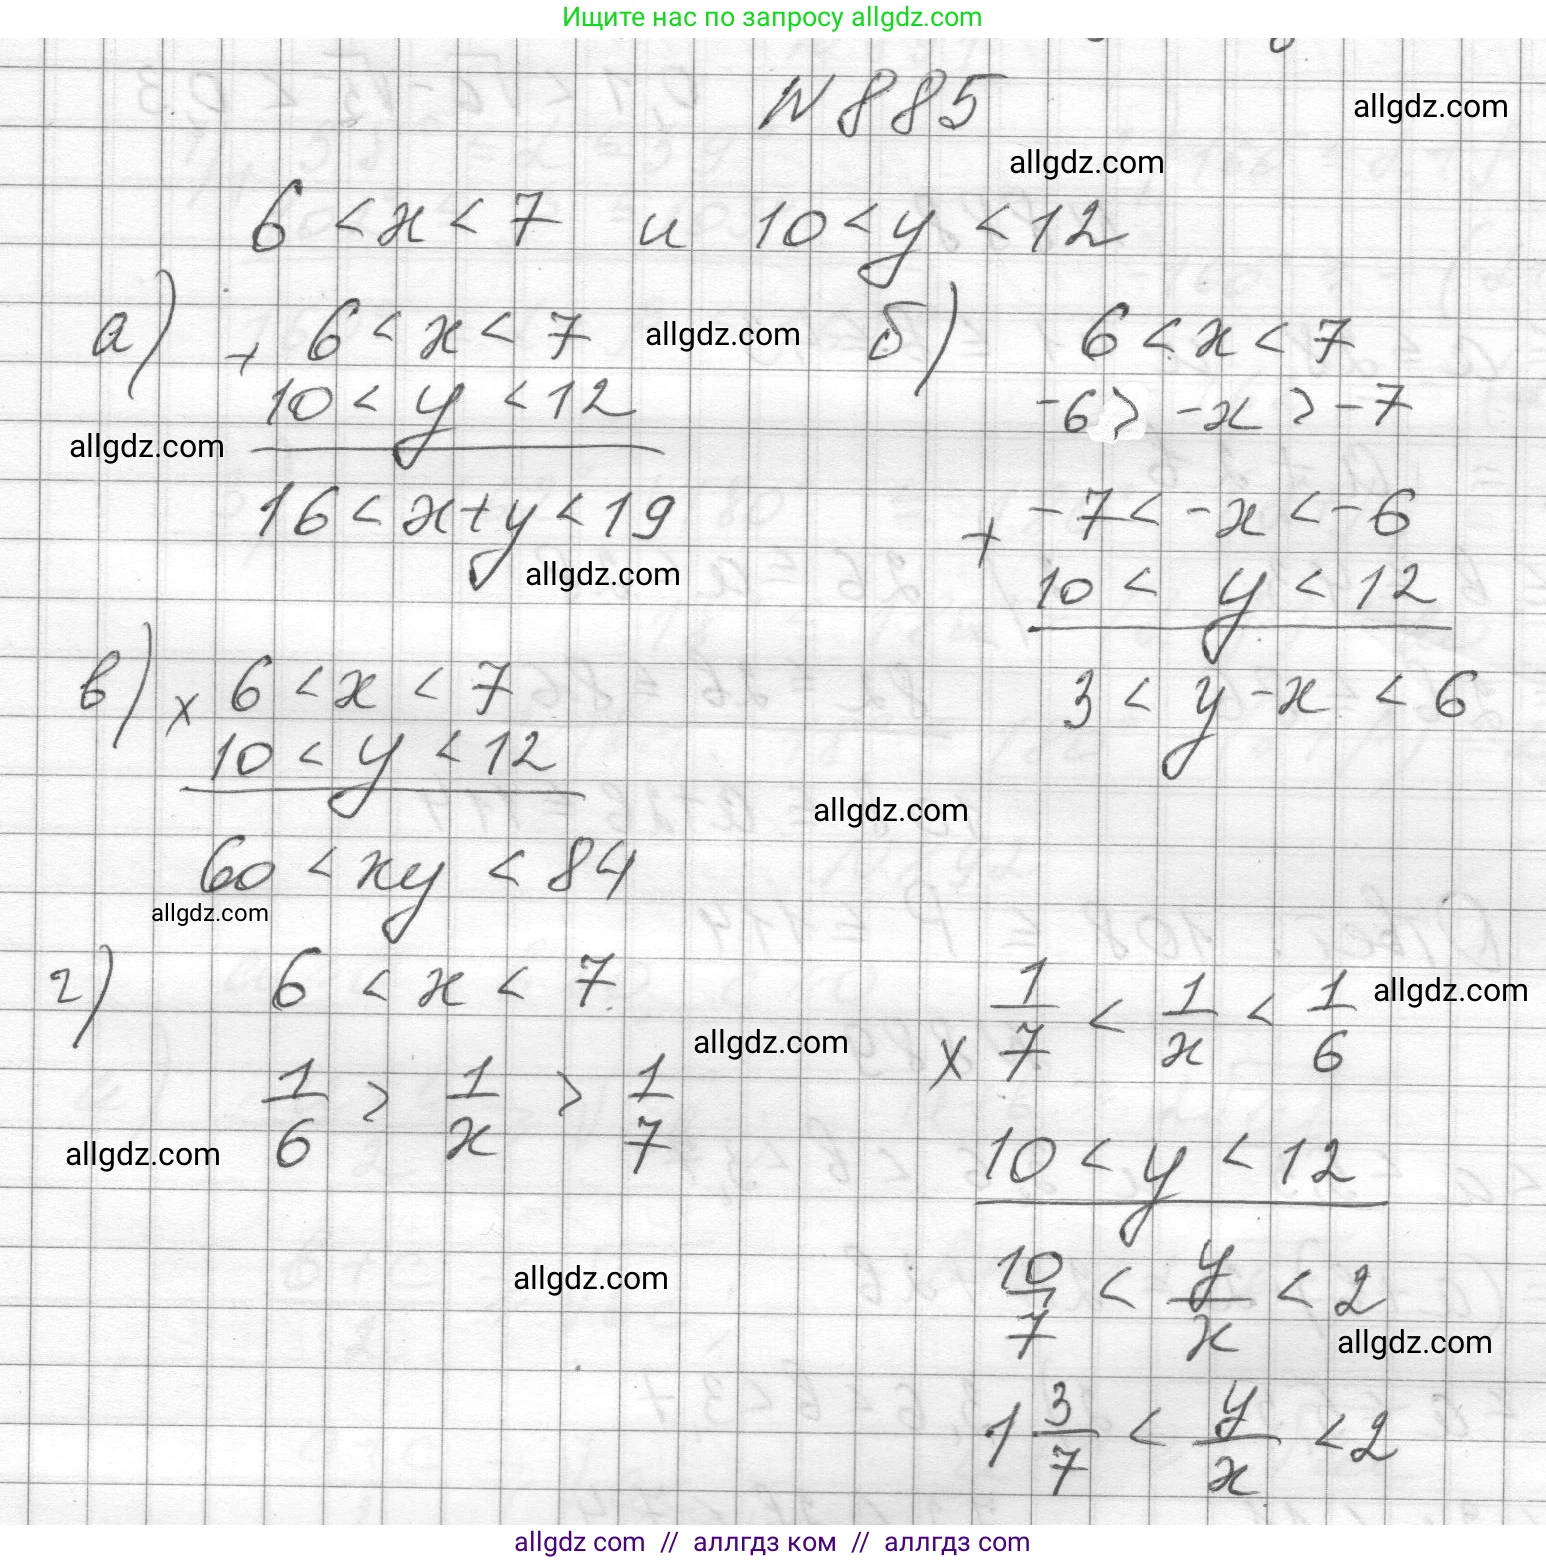 Ищите нас по запросу allgdz.com
N 885
allgdz.com
allgdz.com
6 < x < 7 и 10 < y < 12
а) + 6 < x < 7
10 < y < 12
16 < x+y < 19
allgdz.com
allgdz.com
allgdz.com
б) 6 < x < 7
-6 > -x > -7
+ -7 < -x < -6
10 < y < 12
3 < y - x < 6
в) x 6 < x < 7
10 < y < 12
60 < xy < 84
allgdz.com
allgdz.com
г) 6 < x < 7
1/6 > 1/x > 1/7
allgdz.com
allgdz.com
allgdz.com
x 1/7 < 1/x < 1/6
allgdz.com
10 < y < 12
10/7 < y/x < 2
allgdz.com
1 3/7 < y/x < 2
allgdz.com // аллгдз ком // аллгдз.com